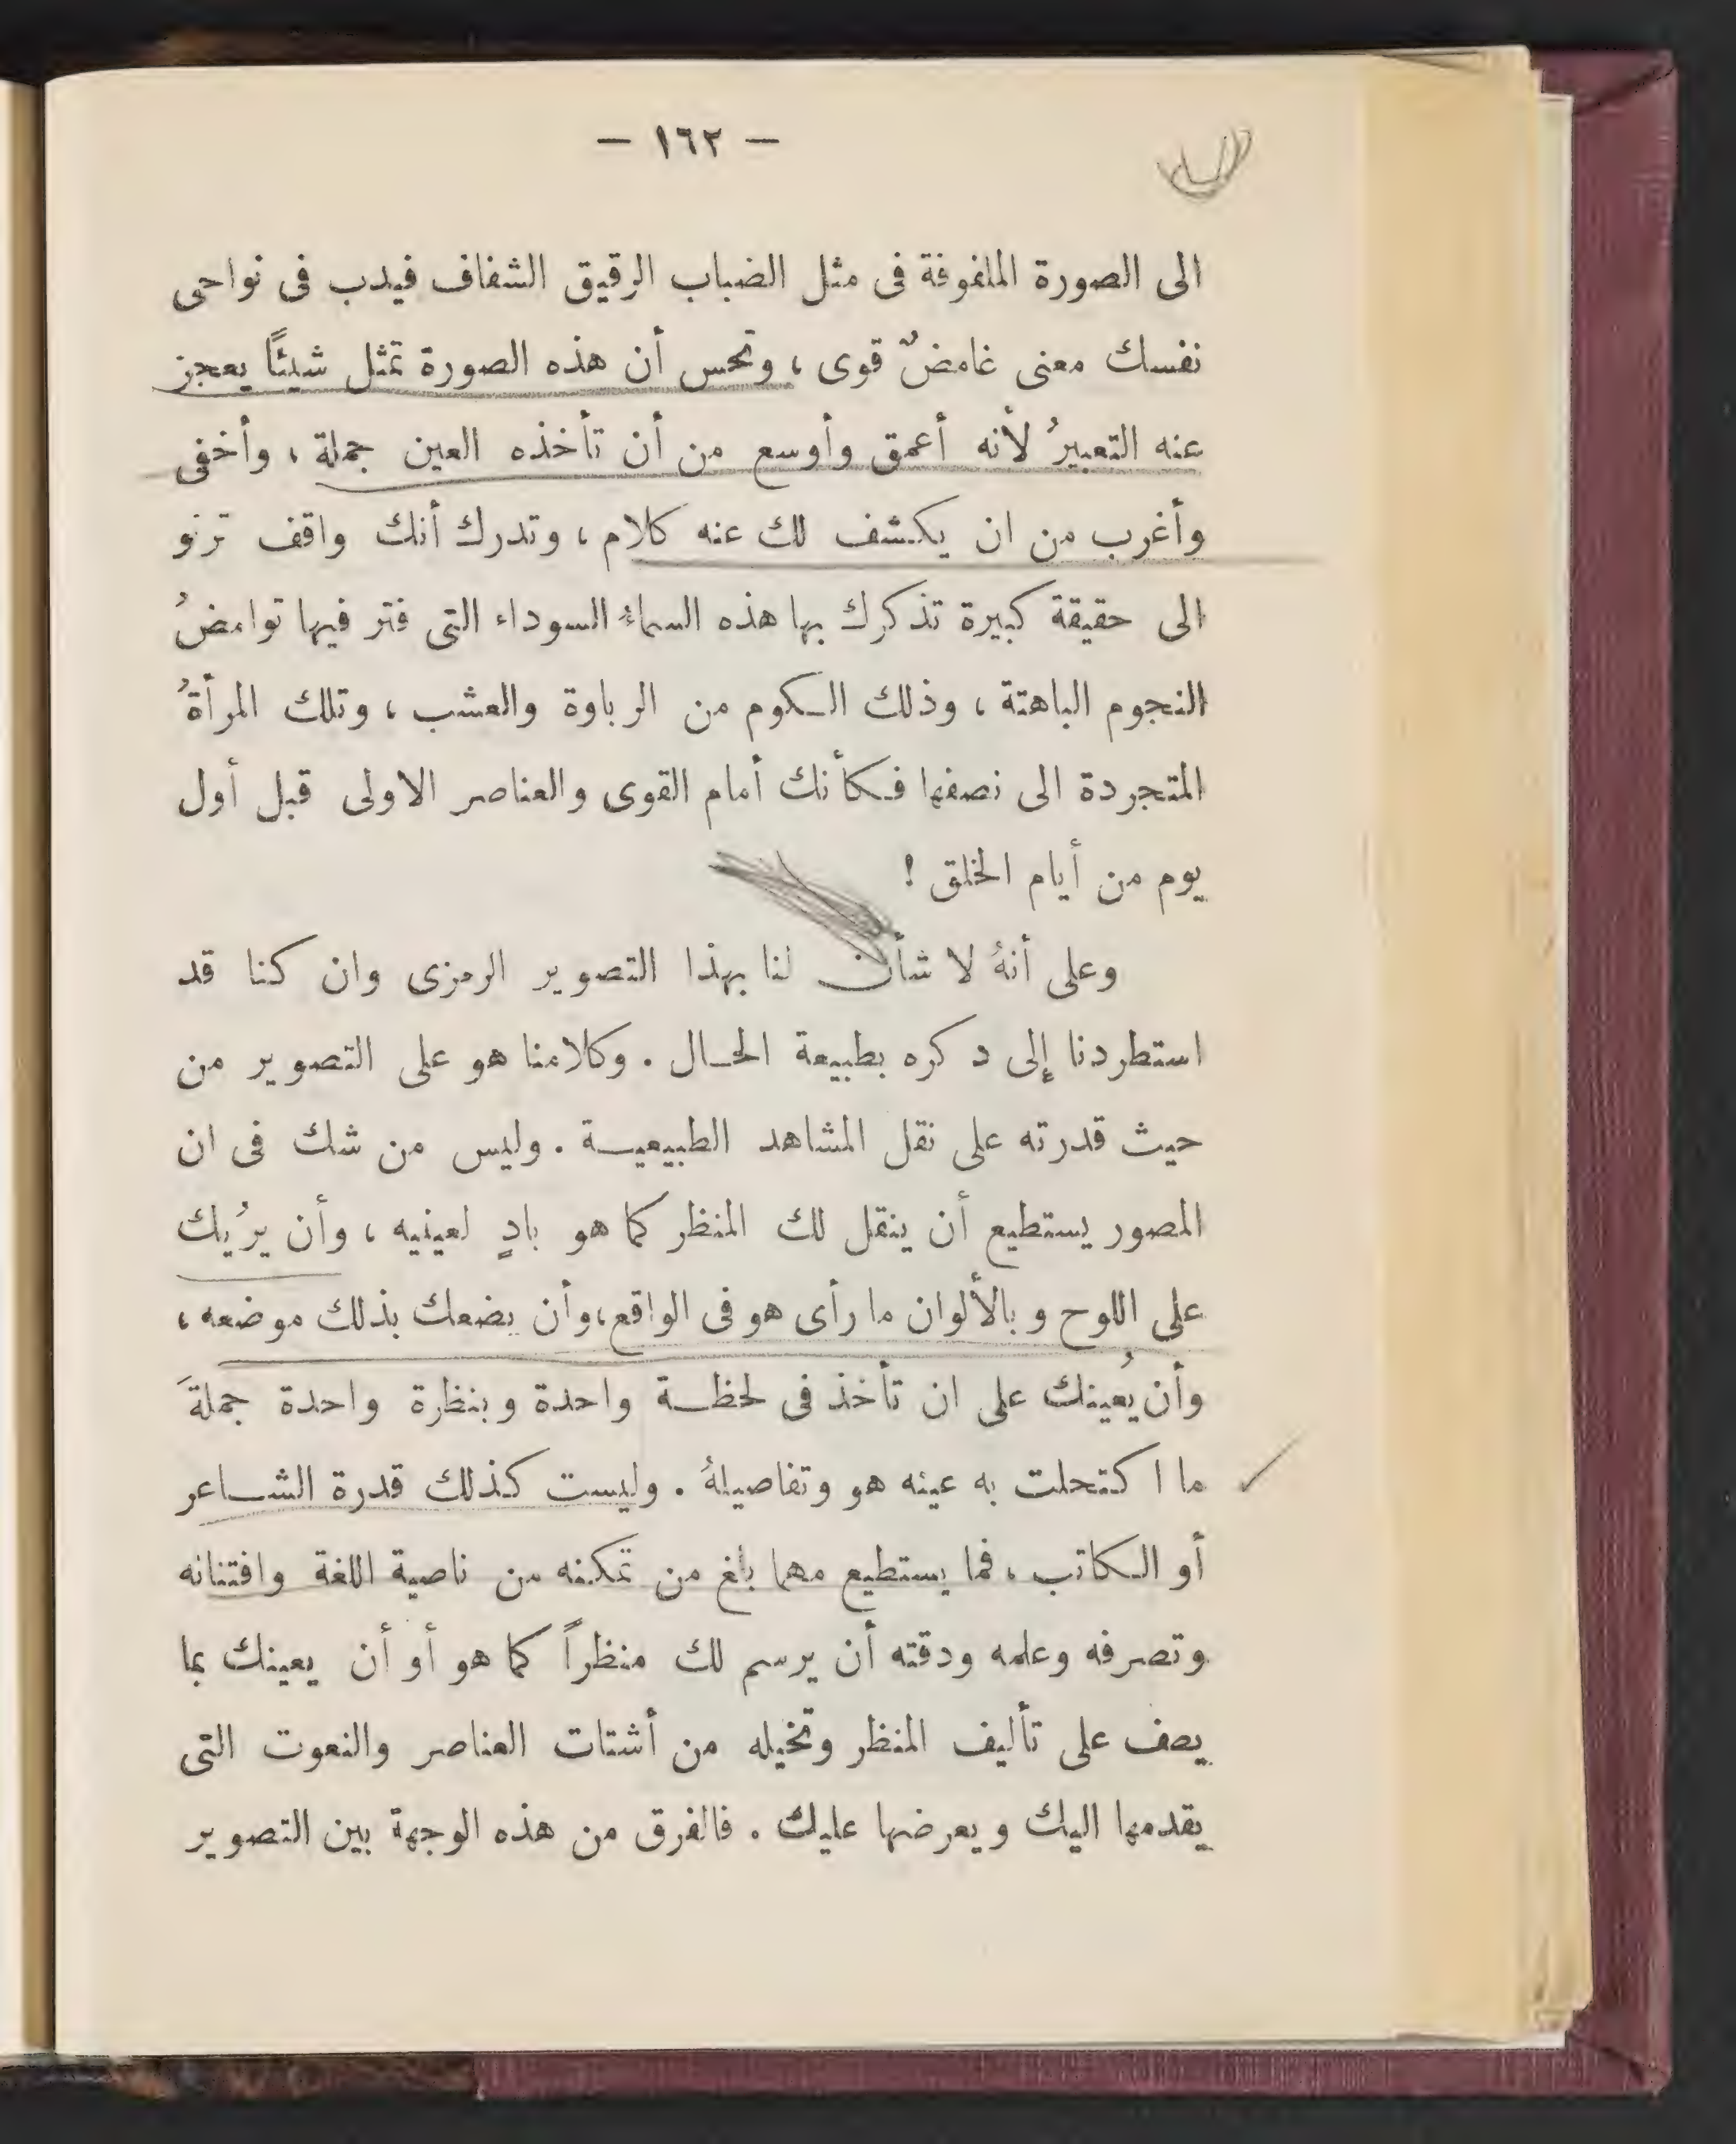 — ١٦٢ —
الى الصورة الملفوفة فى مثل الضباب الرقيق الشفاف فيدب فى نواحى
نفسك معنى غامضٌ قوى ، وتحس أن هذه الصورة تمثل شيئًا يعجز
عنه التعبيرُ لأنه أعمق وأوسع من أن تأخذه العين جملة ، وأخفى
وأغرب من ان يكشف لك عنه كلام ، وتدرك أنك واقف ترنو
الى حقيقة كبيرة تذكرك بها هذه السماءُ السوداء التى فتر فيها توامضُ
النجوم الباهتة ، وذلك الكوم من الرباوة والعشب ، وتلك المرأةُ
المتجردة الى نصفها فكأنك أمام القوى والعناصر الاولى قبل أول
يوم من أيام الخلق !
وعلى أنهُ لا شأن لنا بهذا التصوير الرمزى وان كنا قد
استطردنا إلى دكره بطبيعة الحال . وكلامنا هو على التصوير من
حيث قدرته على نقل المشاهد الطبيعية . وليس من شك فى ان
المصور يستطيع أن ينقل لك المنظر كما هو بادٍ لعينيه ، وأن يرُيك
على اللوح وبالألوان ما رأى هو فى الواقع ، وأن يضعك بذلك موضعه ،
وأن يُعينك على ان تأخذ فى لحظة واحدة وبنظرة واحدة جملةَ
ما اكتحلت به عينه هو وتفاصيلهُ . وليست كذلك قدرة الشاعر
أو الكاتب ، فما يستطيع مهما بلغ من تمكنه من ناصية اللغة وافتنانه
وتصرفه وعلمه ودقته أن يرسم لك منظراً كما هو أو أن يعينك بما
يصف على تأليف المنظر وتخيله من أشتات العناصر والنعوت التى
يقدمها اليك ويعرضها عليك . فالفرق من هذه الوجهة بين التصوير